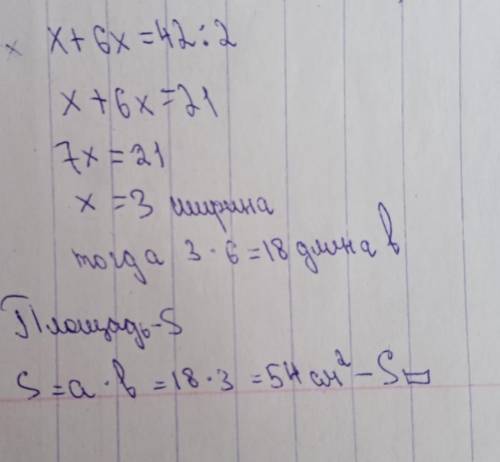 x + 6x = 42 : 2
x + 6x = 21
7x = 21
x = 3 ширина
тогда 3 · 6 = 18 длина b
Площадь - S
S = a · b = 18 · 3 = 54 см² - S▭